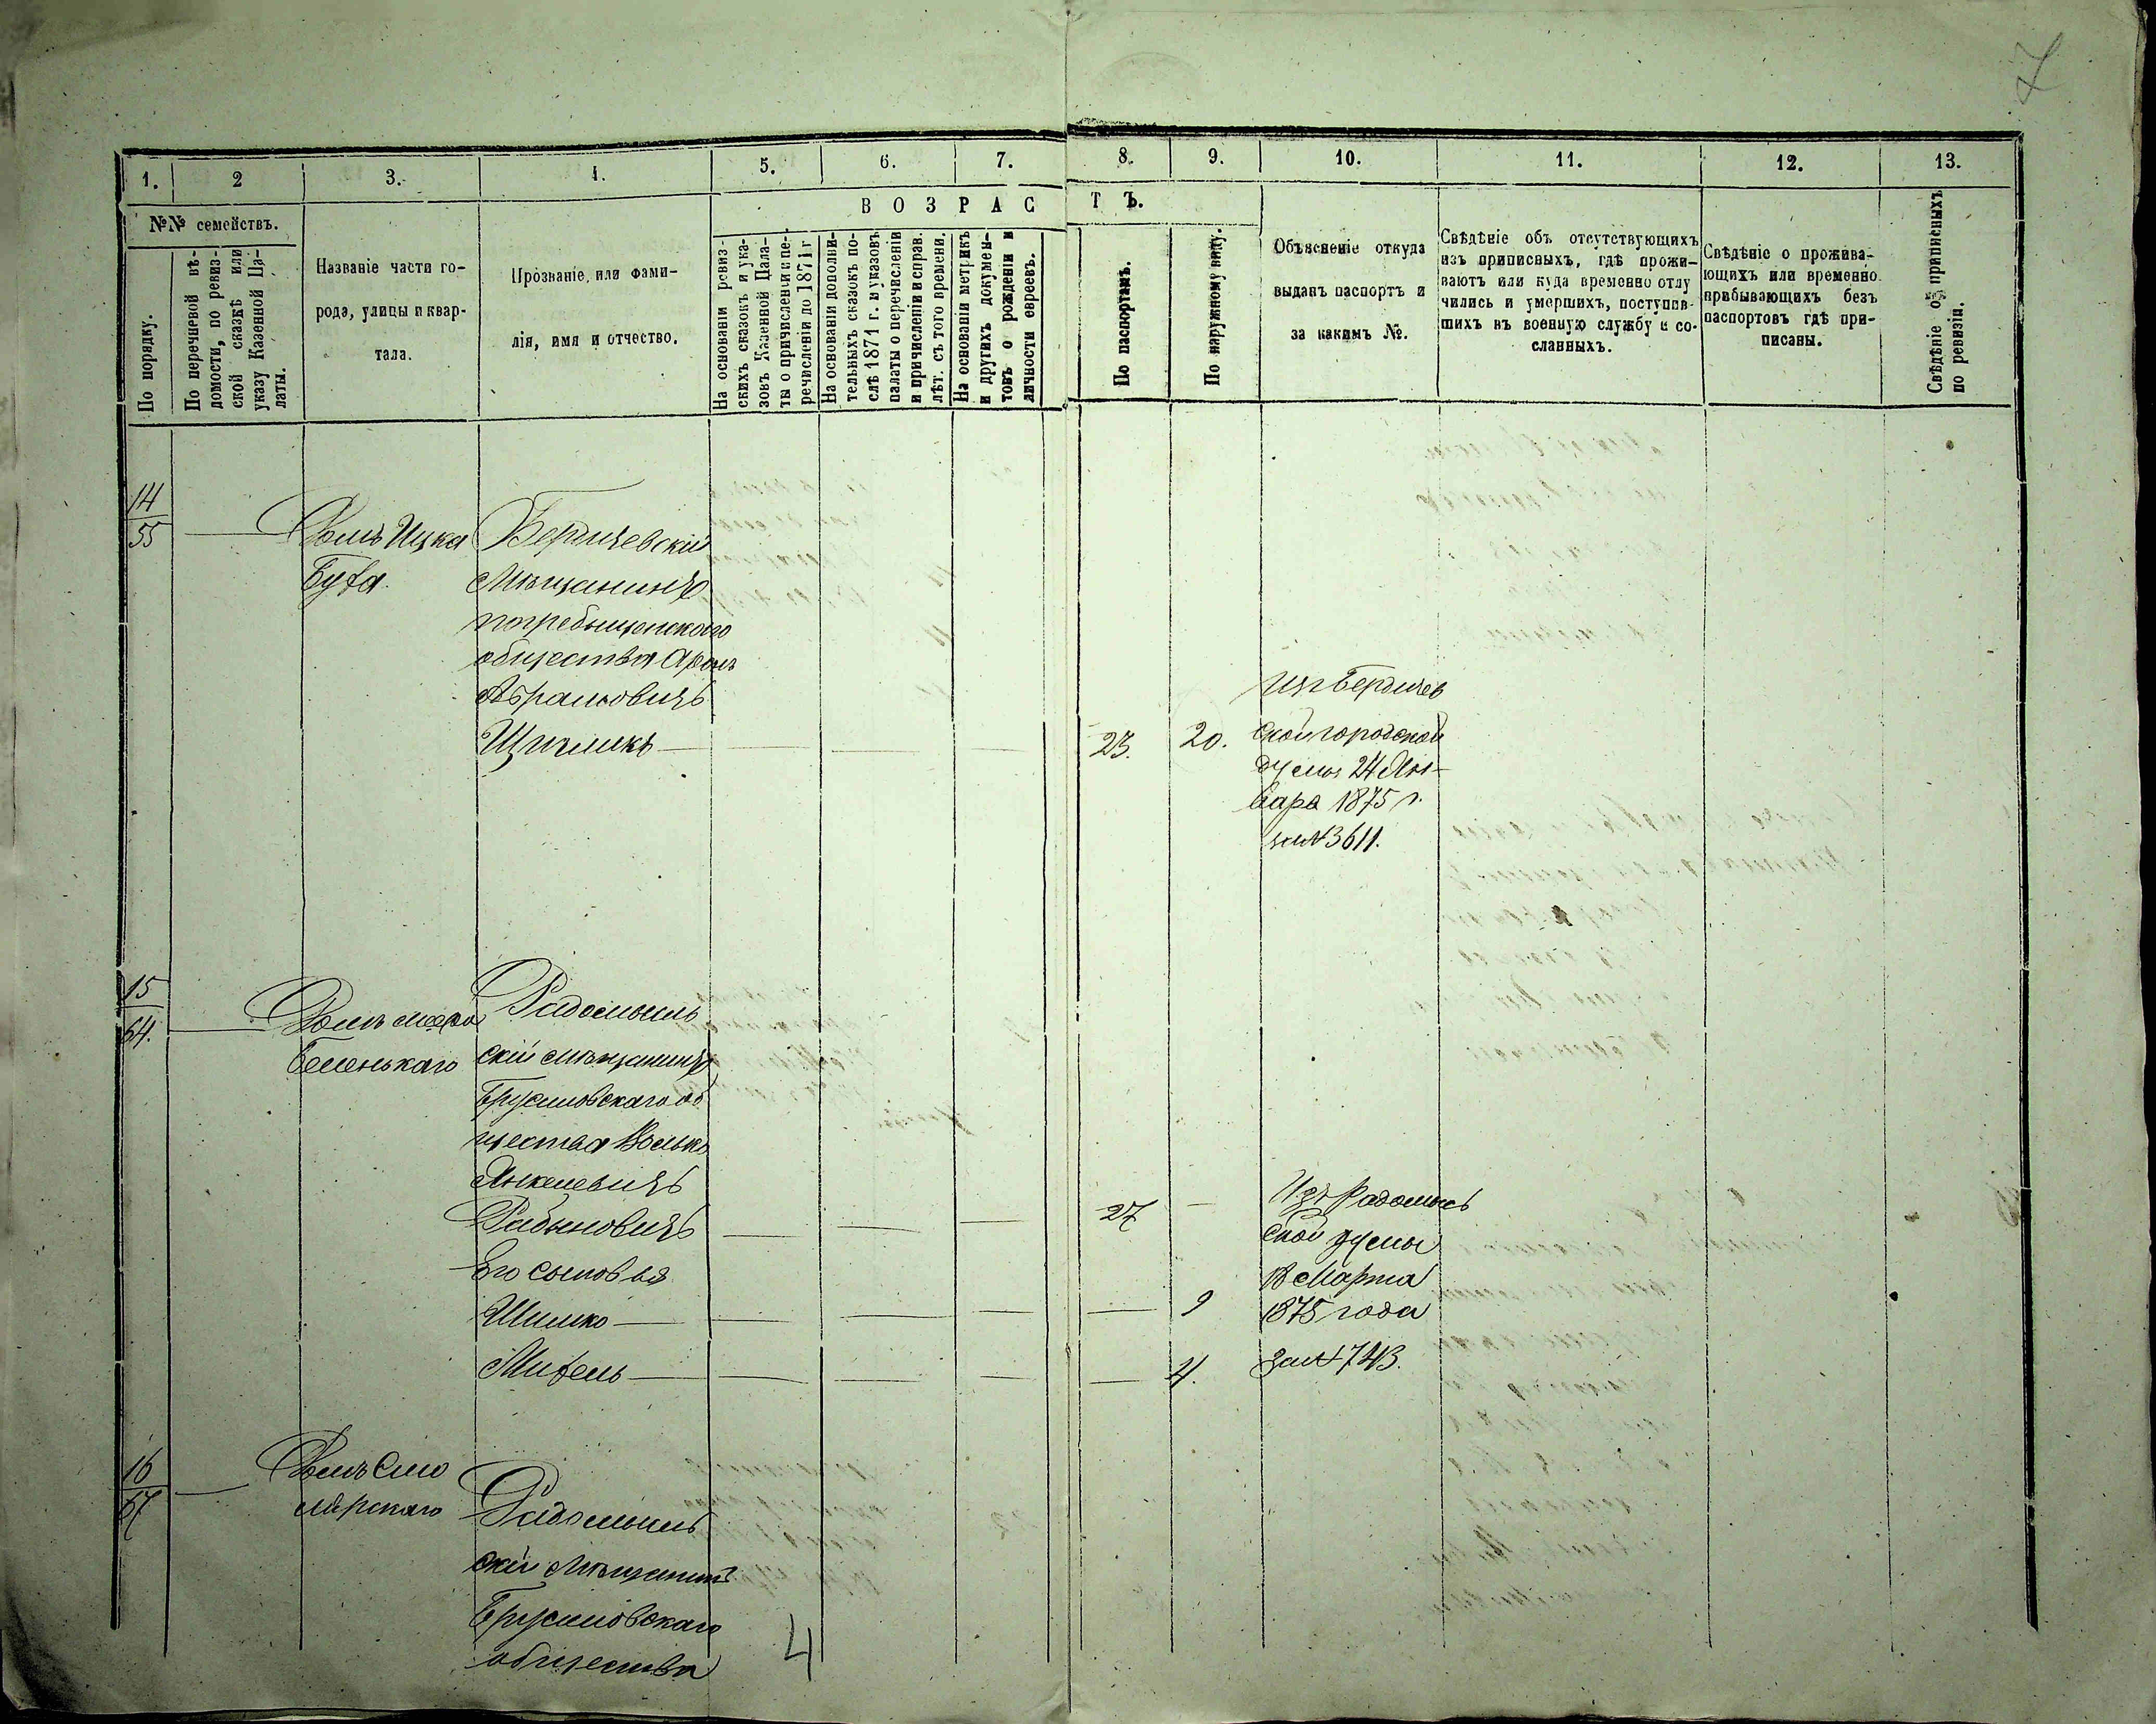 7
1.
2
3.
4.
5.
6.
7.
8.
9.
10.
11.
12.
13.
№№ семействъ.
По порядку.
По перечневой вѣ-
домости, по ревиз-
ской сказкѣ или
указу Казенной Па-
латы.
Названіе части го-
рода, улицы и квар-
тала.
Прозваніе, или фами-
лія, имя и отчество.
ВОЗРАСТЪ.
На основаніи ревиз-
скихъ сказокъ и ука-
зовъ Казенной Пала-
ты о причисленіи и пе-
речисленіи до 1871 г
На основаніи дополни-
тельныхъ сказокъ по-
слѣ 1871 г. и указовъ
палаты о перечисленіи
и причисленіи и справ.
лѣт. съ того времени.
На основаніи метрикъ
и другихъ докумен-
товъ о рожденіи и
личности евреевъ.
По паспортамъ.
По наружному виду.
Объясненіе откуда
выданъ паспортъ и
за какимъ №.
Свѣдѣніе объ отсутствующихъ
изъ приписныхъ, гдѣ прожи-
ваютъ или куда временно отлу
чились и умершихъ, поступив-
шихъ въ военную службу и со-
сланныхъ.
Свѣдѣніе о прожива-
ющихъ или временно
прибывающихъ безъ
паспортовъ гдѣ при-
писаны.
Свѣдѣніе о приписныхъ
по ревизіи.
14
55
Домъ Ицка
Буfа.
Бердичевскій
Мѣщанинъ
погребыщенского
общества Аронъ
Абрамовичъ
Щупликъ
23.
20.
Изъ Бердичев
ской городской
думы 24 Ян-
варя 1875 г.
за №3611.
15
64.
Домъ
Беленькаго
Радомысль
скій мѣщанинъ
Брусиловскаго об
щества Волько
Янкелевичъ
Рабиновичъ
27
Его сыновья
Шимко
9
Мифель
4.
Изъ Радомысль
ской думы
18 Марта
1875 года
за № 743.
16
67
Домъ Смо
лярскаго
Радомысль
скій Мѣщанинъ
Брусиловскаго
общества
4